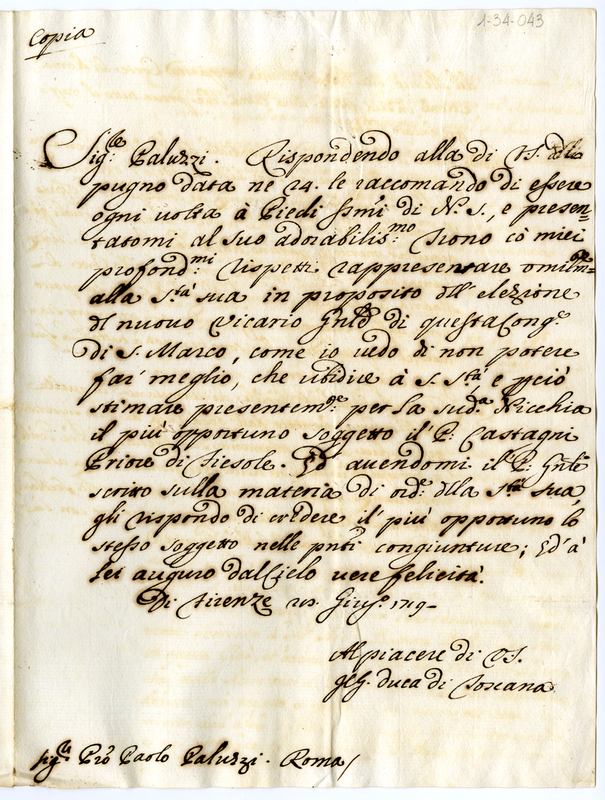 1-34-043
Copia
Sig.re Paluzzi. Rispondendo alla di V.S. delli
pugno data ne 24. le raccomando di essere
ogni volta à Piedi ssmi di N. S., e presen=
tatomi al suo adorabilis.mo Trono cò miei
profond.mi rispetti rappresentare omilm.te
alla S.tà sua in proposito dll' elezione
dl nuovo Vicario Gnle di questa Cong.e
di S. Marco, come io vedo di non potere
far meglio, che ubidire à S. Stà, e pciò
stimare presentem.te per la sud.a Nicchia
il più opportuno soggetto il P: Castagni
Priore di Fiesole. Ed avendomi il P: Gnle
scritto sulla materia di ord.e dlla S.tà sua,
gli rispondo di credere il più opportuno lo
stesso soggetto nelle pnti congiunture; Ed à
Lei auguro dal Cielo vere felicità.
Di Firenze Giug.o 1719-
Al piacere di V.S.
Duca di Toscana
Sig.re Prò Paolo Paluzzi. Roma/